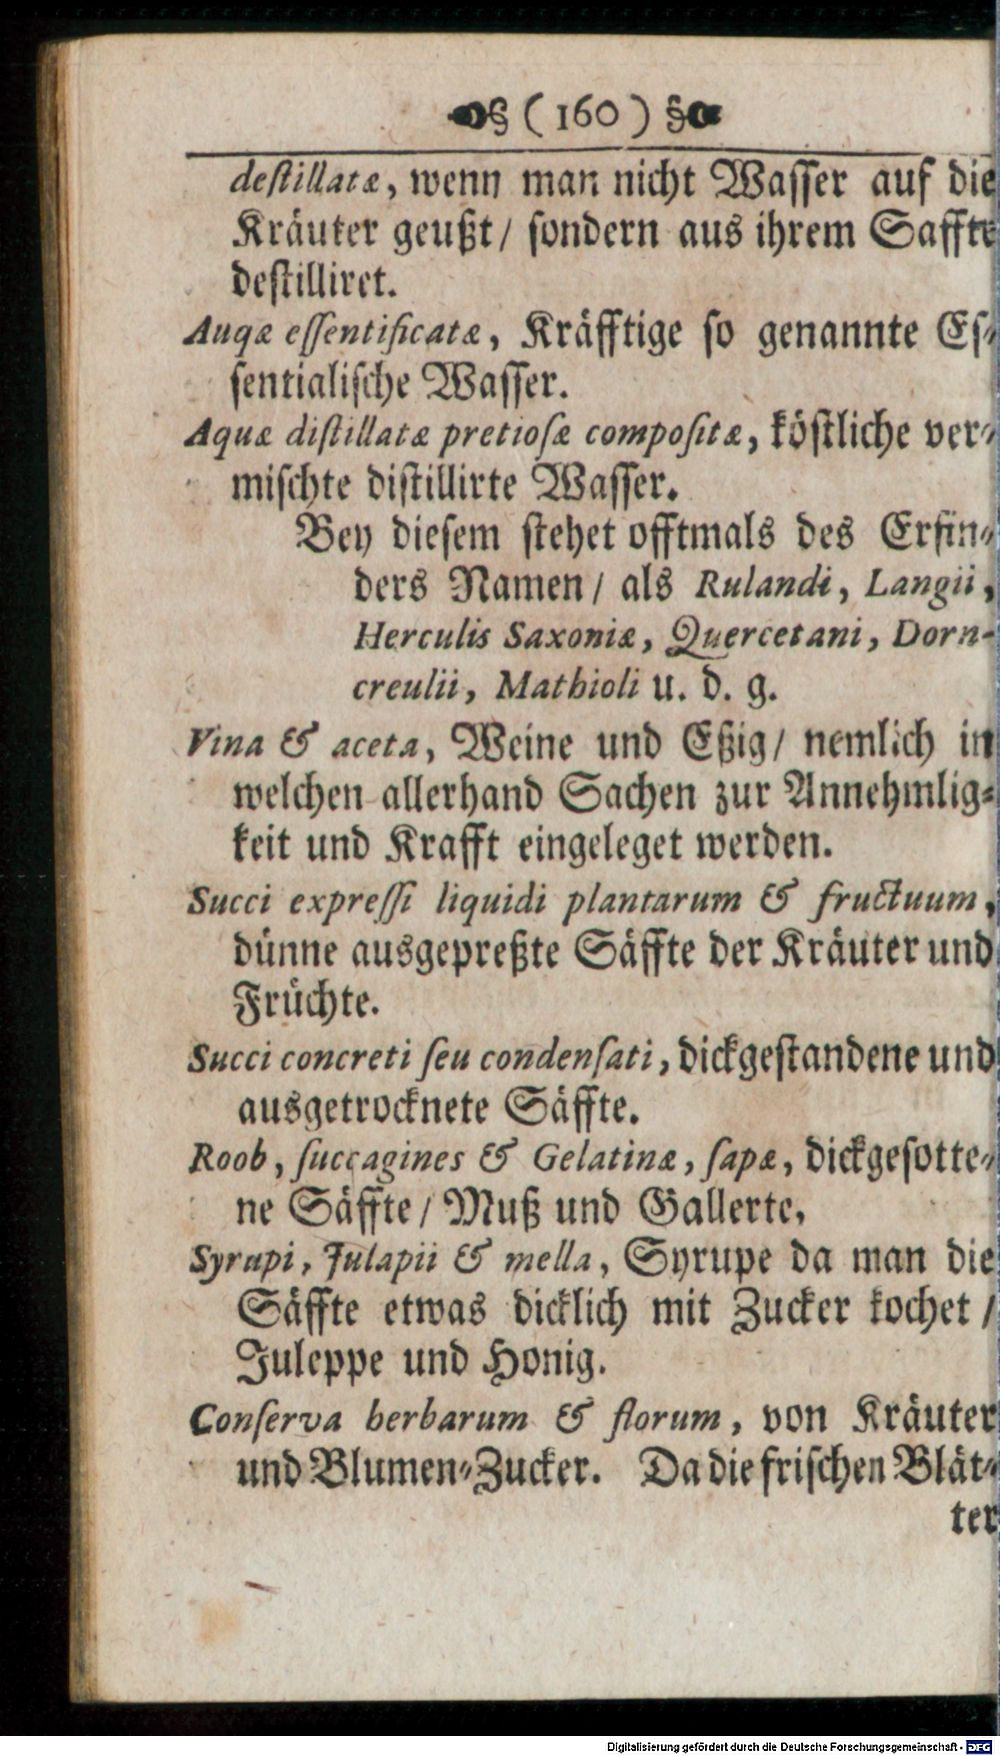 ( 160 )
destillatæ, wenn man nicht Wasser auf die
Kräuter geußt / sondern aus ihrem Saffte
destilliret.
Auqæ essentificatæ, Kräfftige so genannte Es-
sentialische Wasser.
Aquæ distillatæ pretiosæ compositæ, köstliche ver-
mischte distillirte Wasser.
Bey diesem stehet offtmals des Erfin-
ders Namen / als Rulandi, Langii,
Herculis Saxoniæ, Quercetani, Dorn-
creulii, Mathioli u. d. g.
Vina & aceta, Weine und Eßig / nemlich in
welchen allerhand Sachen zur Annehmlig-
keit und Krafft eingeleget werden.
Succi expressi liquidi plantarum & fructuum,
dünne ausgepreßte Säffte der Kräuter und
Früchte.
Succi concreti seu condensati, dickgestandene und
ausgetrocknete Säffte.
Roob, succagines & Gelatinæ, sapæ, dickgesotte-
ne Säffte / Muß und Gallerte,
Syrupi, Julapii & mella, Syrupe da man die
Säffte etwas dicklich mit Zucker kochet /
Juleppe und Honig.
Conserva herbarum & florum, von Kräuter
und Blumen-Zucker. Da die frischen Blät-
ter
Digitalisierung gefördert durch die Deutsche Forschungsgemeinschaft - DFG